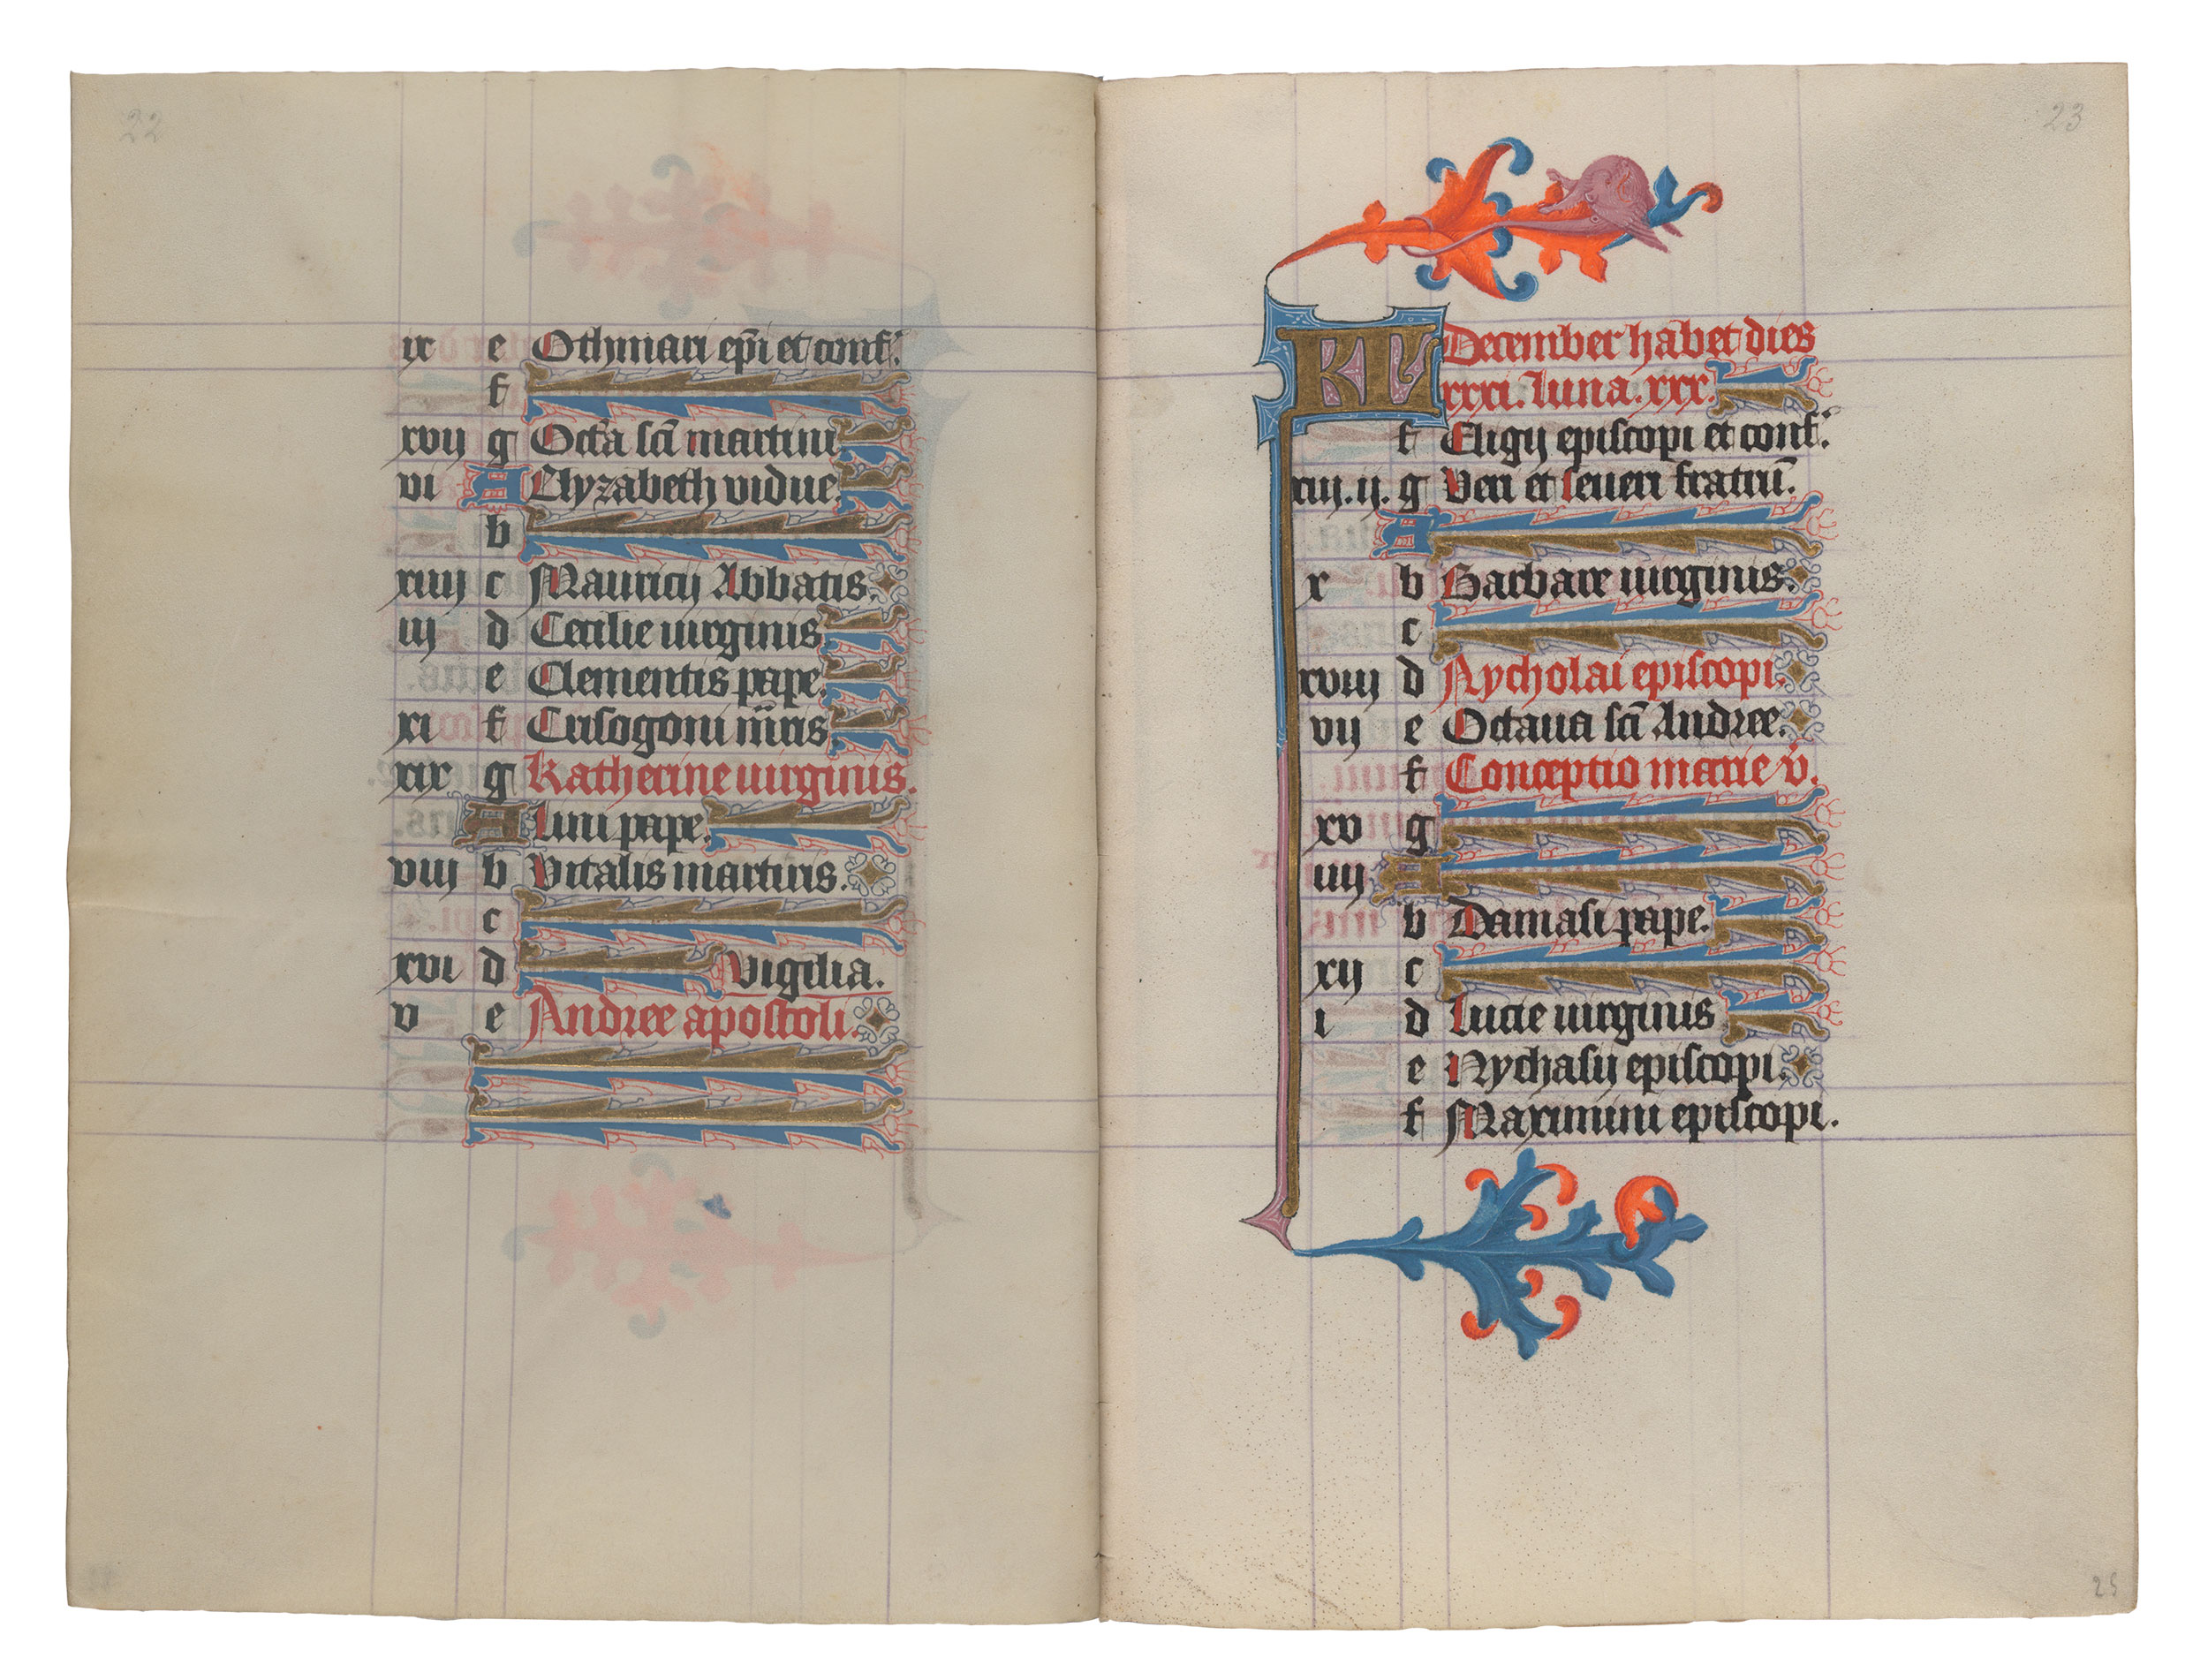 22
ix e Othmari ep̄i et conf.
f
xvij g Octa sc̄i martini
vi A Elyzabeth vidue.
b
xiiij c Mauricij Abbatis.
iij d Cecilie uirginis
e Clementis pape.
xi f Crisogoni m̄ris
xix g Katherine uirginis.
A Lini pape.
viij b Vitalis martiris.
c
xvi d Vigilia.
v e Andree apostoli.
23
KL December habet dies
xxxi. Luna. xxx.
f Eligij episcopi et conf.
xiij. ij. g Veri et seueri fratrū.
A
x b Barbare uirginis.
c
xviij d Nycholai episcopi.
vij e Octaua sc̄i Andree.
f Conceptio marie v.
xv g
iiij A
b Damasi pape.
xij c
i d Lucie uirginis
e Nychasij episcopi.
f Maximini episcopi.
25